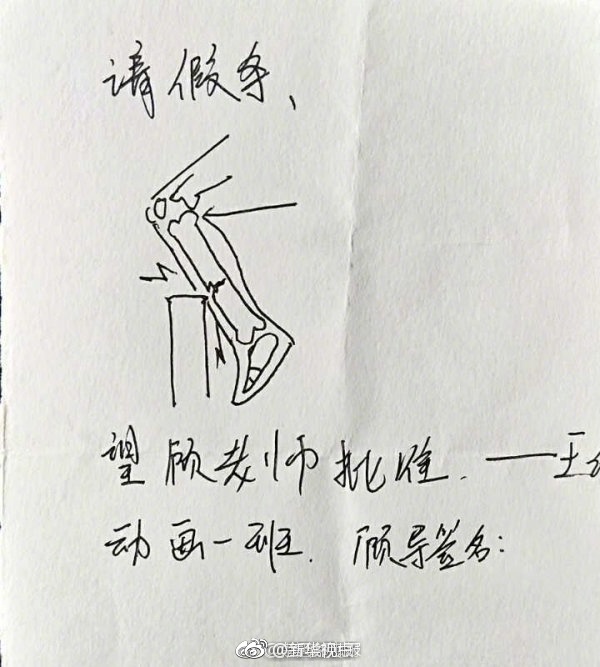 请假条、
望顾老师批准.——王
动画一班. 顾导签名: